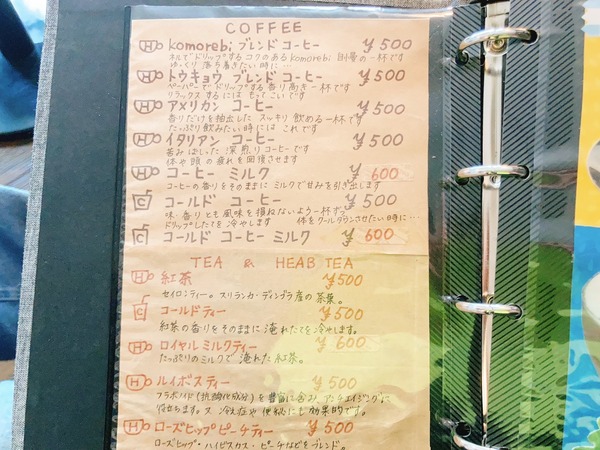 COFFEE
H komorebi ブレンド コーヒー ¥500
ネルでドリップする コクのある komorebi 自慢の一杯です
ゆっくり落ち着きたい時に…
H トウキョウ ブレンド コーヒー ¥500
ペーパーでドリップする香り高き一杯です
リラックスするにはもってこいです
H アメリカン コーヒー ¥500
香りだけを抽出した スッキリ飲める一杯です
たっぷり飲みたい時には これです
H イタリアン コーヒー ¥500
苦みばしった 深煎りコーヒーです
体や頭の疲れを回復させます
H コーヒー ミルク ¥600
コーヒーの香りをそのままに ミルクで甘みを引き出します
C コールド コーヒー ¥500
味・香りとも風味を損ねないよう一杯ずつ
ドリップしたてを冷やします 体をクールダウンさせたい時に…
C コールド コーヒー ミルク ¥600
TEA & HEAB TEA
H 紅茶 ¥500
セイロンティー。スリランカ・ディンブラ産の茶葉。
C コールドティー ¥500
紅茶の香りをそのままに 淹れたてを冷やします。
H ロイヤルミルクティー ¥600
たっぷりのミルクで 淹れた紅茶。
H ルイボスティー ¥500
フラボノイド(抗酸化成分)を豊富に含み、アンチエイジングに
役立ちます。又 冷え症や便秘にも効果的です。
H ローズヒップピーチティー ¥500
ローズヒップ・ハイビスカス・ピーチなどをブレンド。